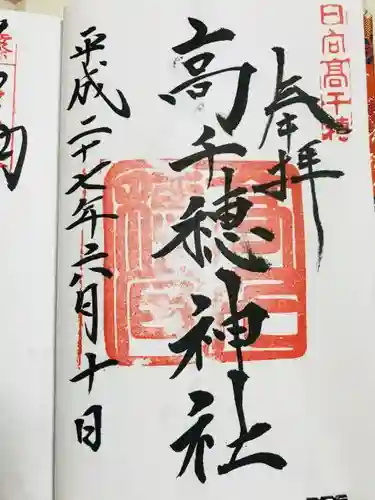 日向高千穂
奉拝
高千穂神社
平成二十七年六月十日